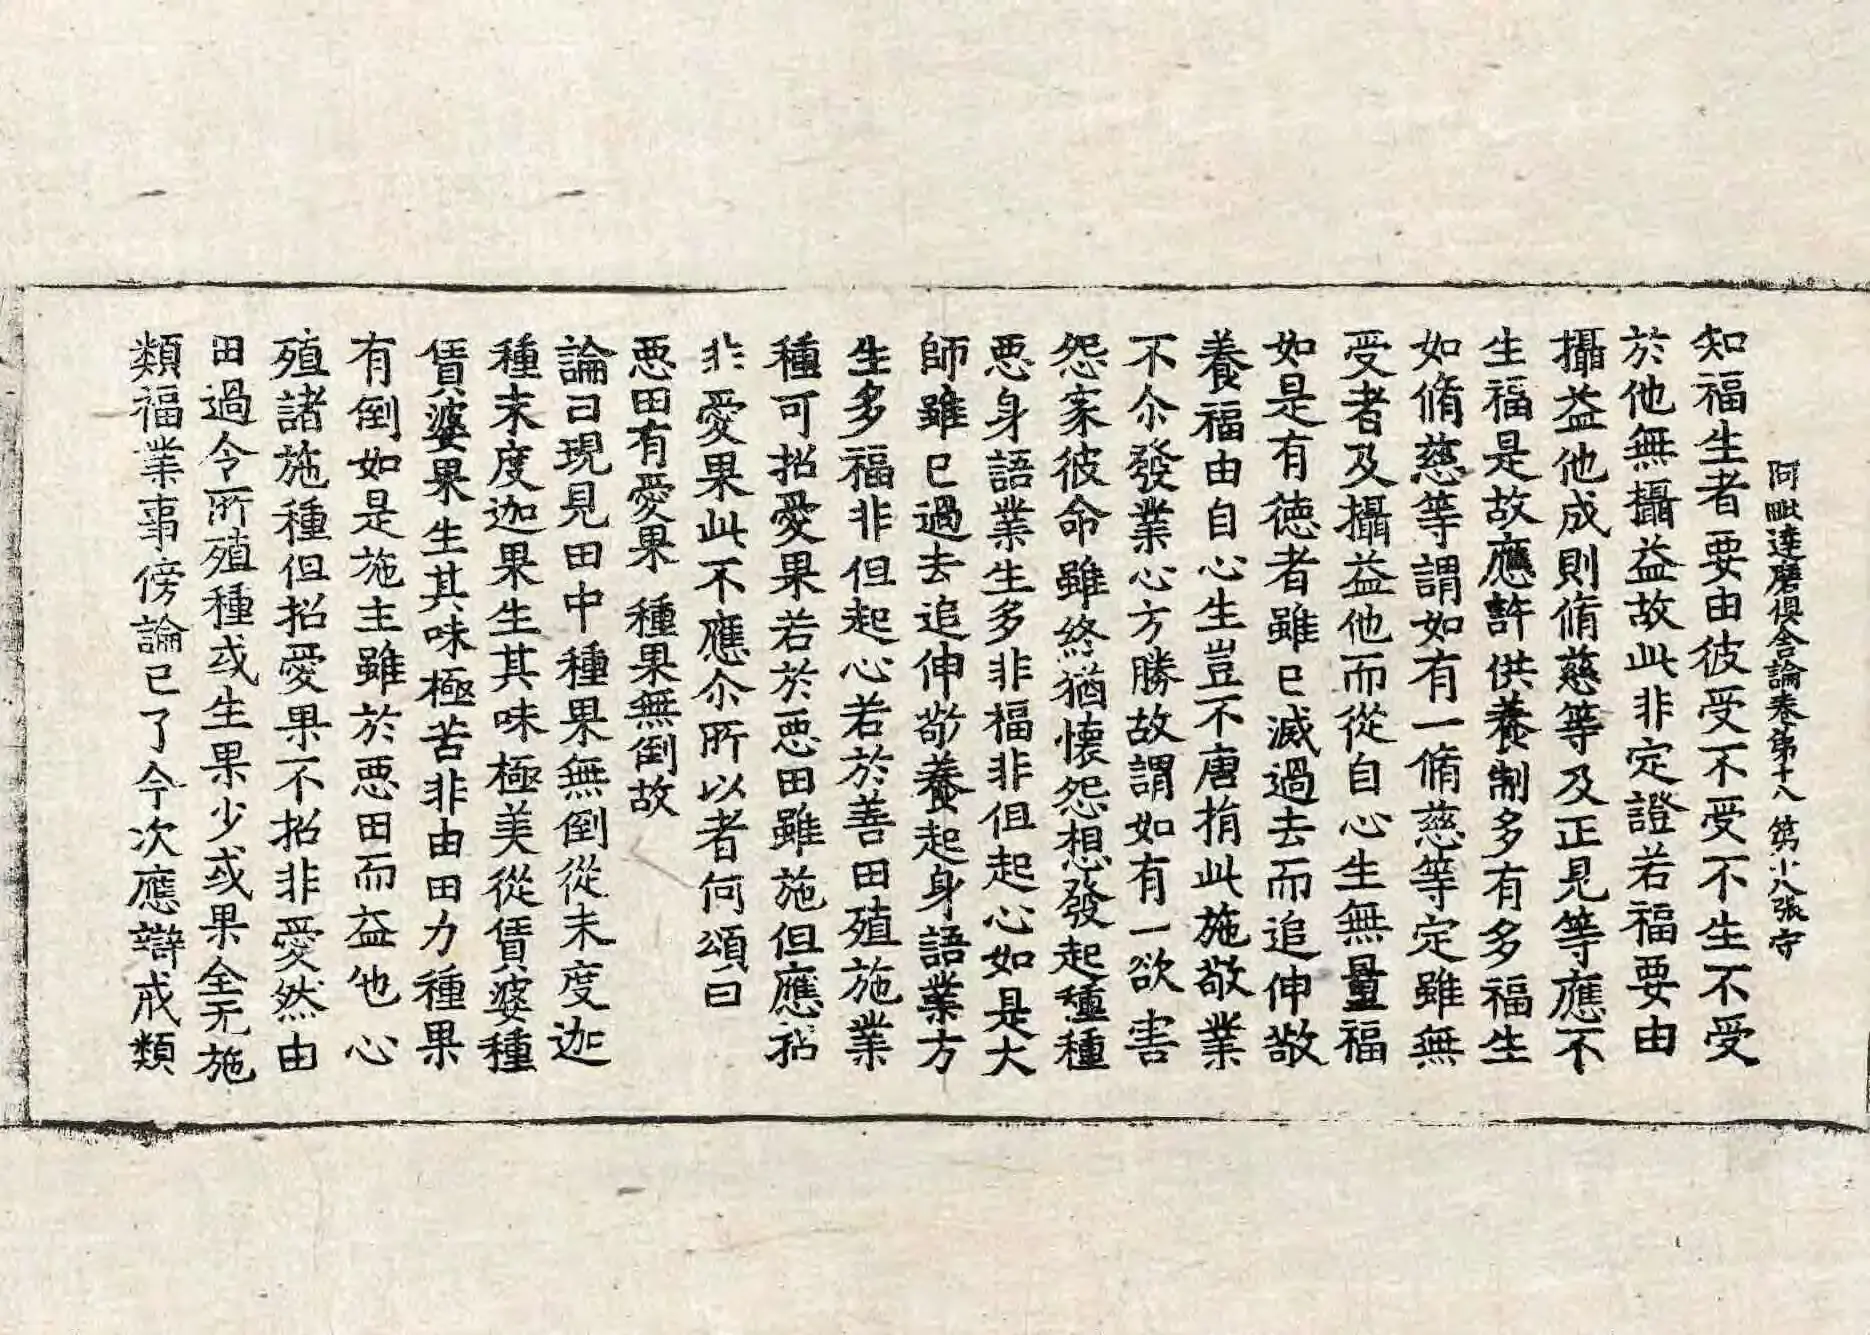 阿毗達磨俱舍論卷第十八 第十八張 守
知福生者要由彼受不受不生不受
於他無攝益故此非定證若福要由
攝益他成則脩慈等及正見等應不
生福是故應許供養制多有多福生
如脩慈等謂如有一脩慈等定雖無
受者及攝益他而從自心生無量福
如是有德者雖已滅過去而追伸敬
養福由自心生豈不唐捐此施敬業
不尒發業心方勝故謂如有一欲害
怨家彼命雖終猶懷怨想發起種種
惡身語業生多非福非但起心如是大
師雖已過去追伸敬養起身語業方
生多福非但起心若於善田殖施業
種可招愛果若於惡田雖施但應招
非愛果此不應尒所以者何頌曰
惡田有愛果 種果無倒故
論曰現見田中種果無倒從末度迦
種末度迦果生其味極美從賃婆種
賃婆果生其味極苦非由田力種果
有倒如是施主雖於惡田而益他心
殖諸施種但招愛果不招非愛然由
田過令所殖種或生果少或果全无施
類福業事傍論已了今次應辯戒類